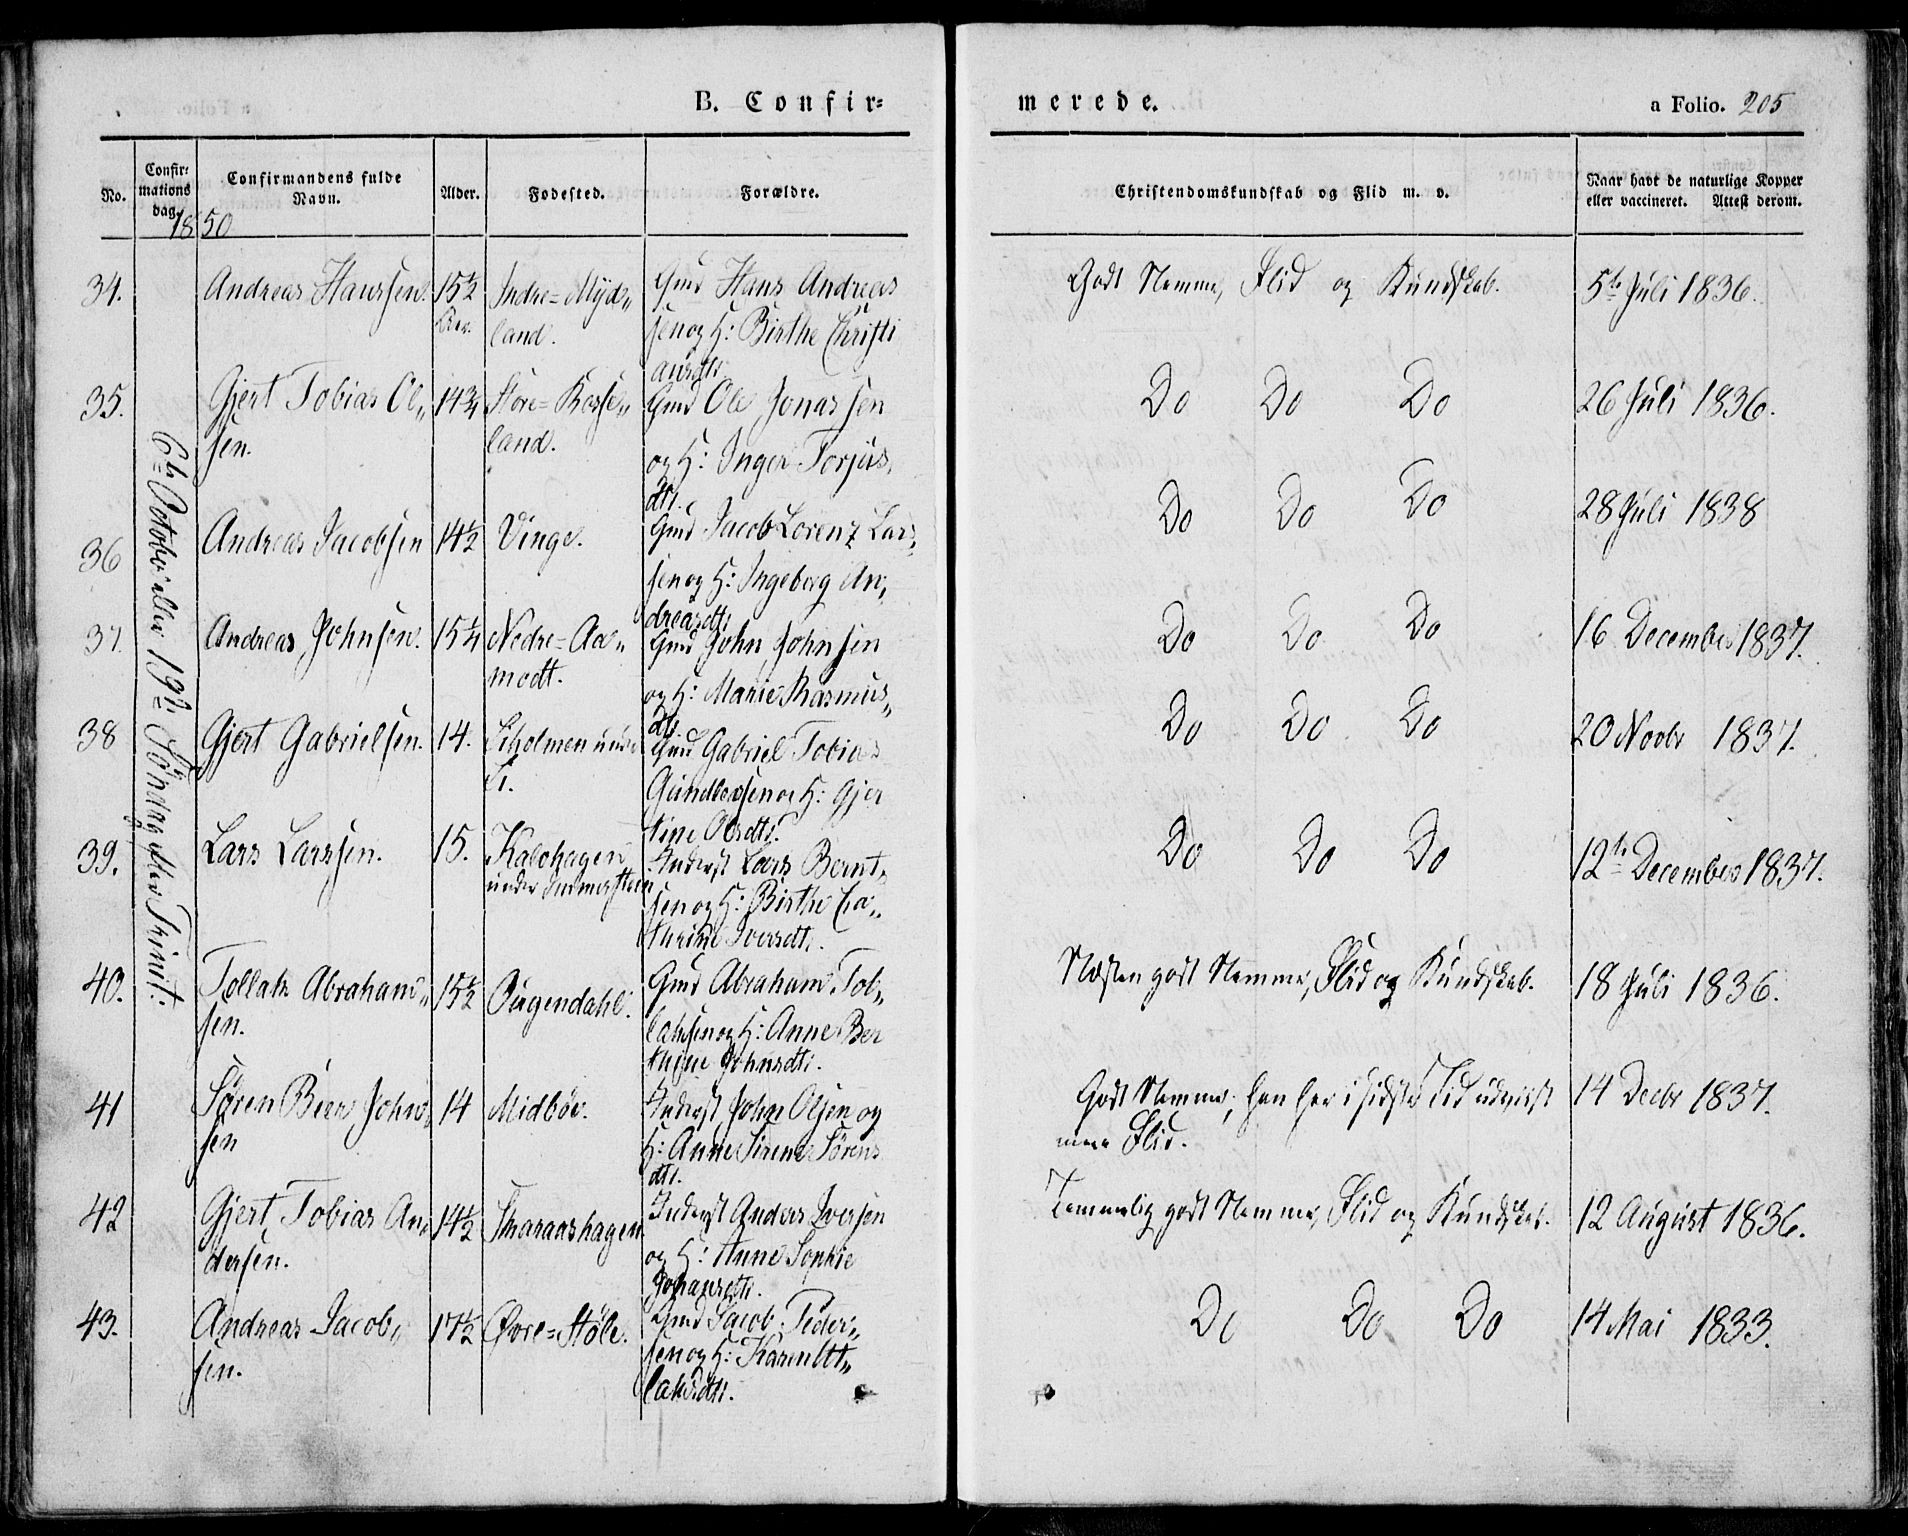 B. Confir=
merede.
a Folio. 205
No.
Confir=
mations
dag.
Confirmandens fulde
Navn.
Alder.
Fødested.
Forældre.
Christendomskundskab og Flid m. v.
Naar havt de naturlige Kopper
eller vaccineret. Attest derom.
1850
6te October eller 19de Søndag efter Trinit:
34.
Andreas Hanssen.
15½
Indre=Myd„
land.
Gmd Hans Andreas
sen og H: Birthe Christi
ansdtr
Godt Nemme, Flid og Kundskab.
5te Juli 1836.
35.
Gjert Tobias Ol„
sen.
14¾
Store=Kosse„
land.
Gmd Ole Jonassen
og H: Inger Torjus
dtr.
Do Do Do
26 Juli 1836.
36
Andreas Jacobsen
14½
Vinge.
Gmd Jacob Lorenz Lar„
sen og H: Ingeborg An„
dreasdtr
Do Do Do
28 Juli 1838
37.
Andreas Johnsen.
15¼
Nedre=Aa„
modt.
Gmd John Johnsen
og H: Marie Rasmus„
dtr.
Do Do Do
16 December 1837.
38
Gjert Gabrielsen.
14.
Gmd Gabriel Tobias
Gundersen og H: Gjer
tine Olsdtr.
Do Do Do
20 Novbr 1837.
39.
Lars Larssen.
15.
Kalvhagen
under
Inderst Lars Bernt„
sen og H: Birthe Ca„
thrine Iversdtr.
Do Do Do
12te December 1837.
40.
Tollak Abraham„
sen.
15½
Øigendahl.
Gmd Abraham Tol„
laksen og H: Anne Ber
thine Johnsdtr.
Næsten godt Nemme, Flid og Kundskab.
18 Juli 1836.
41
Søren Bier John„
sen
14
Midbøe.
Inderst John Olsen og
H: Anne Sirene Sørens
dtr.
Godt Nemme; han har i sidste Tid udviist
mere Flid.
14 Decbr 1837.
42
Gjert Tobias An„
dersen.
14½
Inderst Anders Iversen
og H: Anne Sophie
Johansdtr.
Temmelig godt Nemme, Flid og Kundskab.
12 August 1836.
43.
Andreas Jacob„
sen.
17½
Øvre=Støle.
Gmd Jacob Peder„
sen og H: Karen Ut„
laksdtr.
Do Do Do
14 Mai 1833.